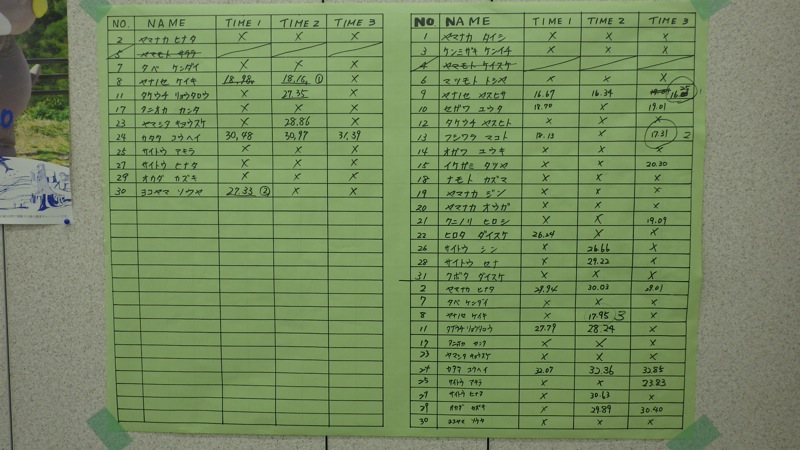 NO. NAME TIME 1 TIME 2 TIME 3
2 ヤマナカ ヒナタ X X X
5 ヤマモト
7 タベ ケンダイ X X X
8 ヤナノセ ケイキ 18.98 18.16 ① X
11 タケウチ リョウタロウ X 27.35 X
17 タニオカ カンタ X X X
23 ヤマシタ キョウスケ X 28.86 X
24 カタタ コウヘイ 30,48 30,97 31,39
25 サイトウ アキラ X X X
27 サイトウ ヒナタ X X X
29 オカダ カズキ X X X
30 ヨコヤマ ソウヤ 27.33 ② X X
NO. NAME TIME 1 TIME 2 TIME 3
1 ヤマナカ タイシ X X X
3 ケンミザキ ケンイチ X X X
4 ヤマモト ケイスケ
6 マツモト トシヤ X X X
9 ヤナノセ ヤスヒサ 16.67 16.34
10 セガワ ユウタ 18.70 X 19.01
12 タケウチ ヤスヒト X X X
13 フジワラ マコト 18.13 X 17.31 2
14 オガワ ユウキ X X X
15 イケガミ タツヤ X X 20.30
18 ナモト カズマ X X X
19 ヤマナカ ジン X X X
20 ヤマナカ オウガ X X X
21 クニノリ ヒロシ X X 19.09
22 ヒロタ ダイスケ 26.24 X X
26 サイトウ シン X 26.66 X
28 サイトウ セナ X 29.22 X
31 クボタ ダイスケ X X X
2 ヤマナカ ヒナタ 28.94 30.03 28.01
7 タベ ケンダイ X X X
8 ヤナノセ ケイキ X 17.95 3 X
11 タケウチ リョウタロウ 27.79 28.24 X
17 タニオカ カンタ X X X
23 ヤマシタ キョウスケ X X X
24 カタタ コウヘイ 32.07 32.36 32.85
25 サイトウ アキラ X X 23.83
27 サイトウ ヒナタ X 30.63 X
29 オカダ カズキ X 29.89 30.40
30 ヨコヤマ ソウヤ X X X